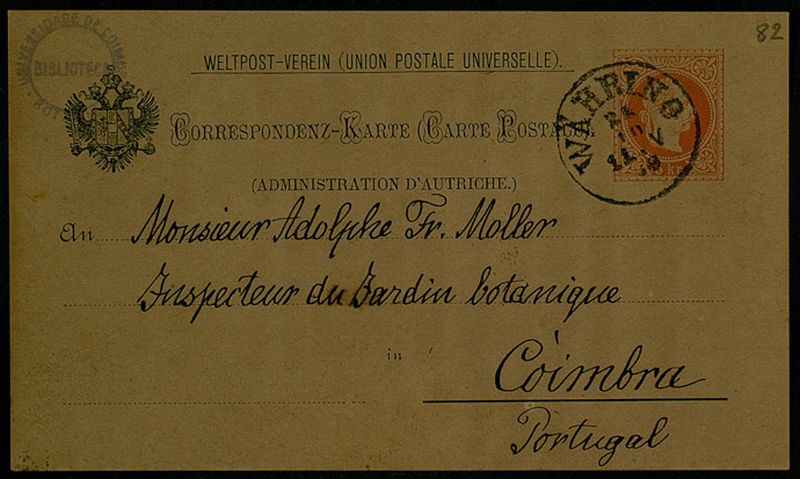 82
UNIVERSIDADE DE COIMBRA
BIBLIOTECA
WELTPOST-VEREIN (UNION POSTALE UNIVERSELLE).
WÄHRING
CORRESPONDENZ-KARTE (CARTE POSTALE)
(ADMINISTRATION D'AUTRICHE.)
An Monsieur Adolphe Fr. Moller
Inspecteur du Jardin botanique
in Cöimbra
Portugal